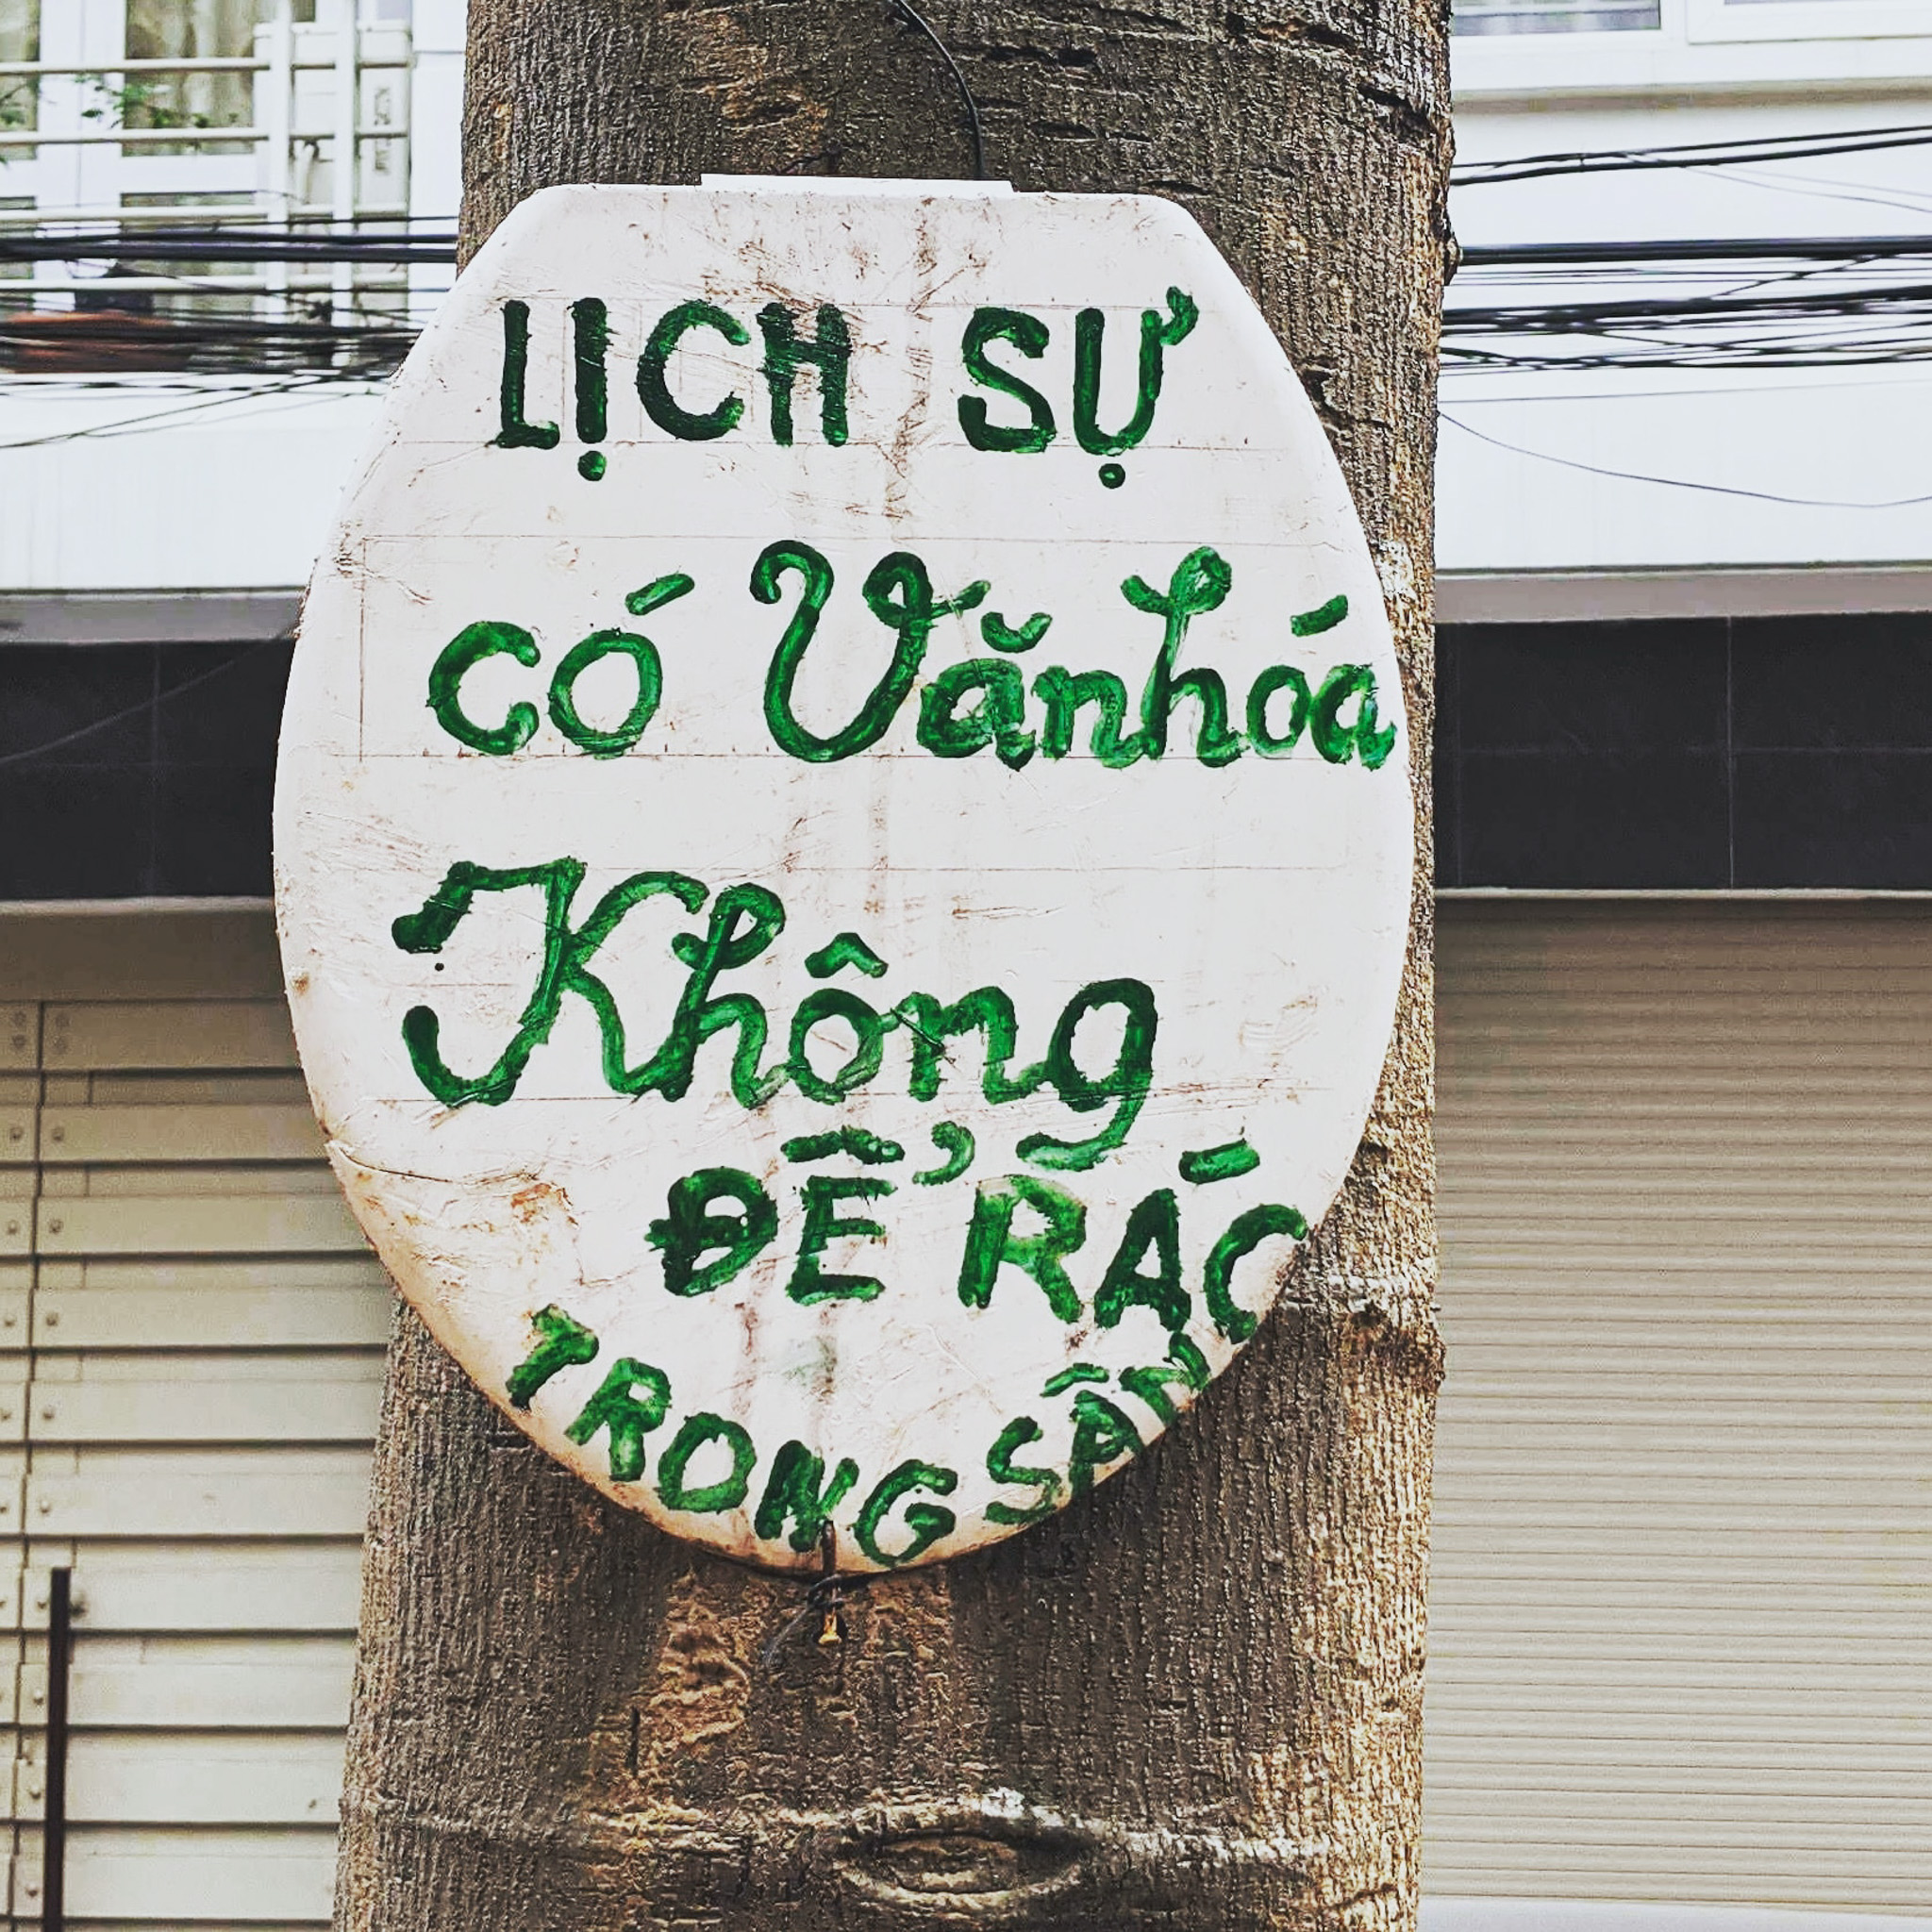 LỊCH SỰ
có Vănhóa
Không
ĐỂ RÁC
TRONG SÂN